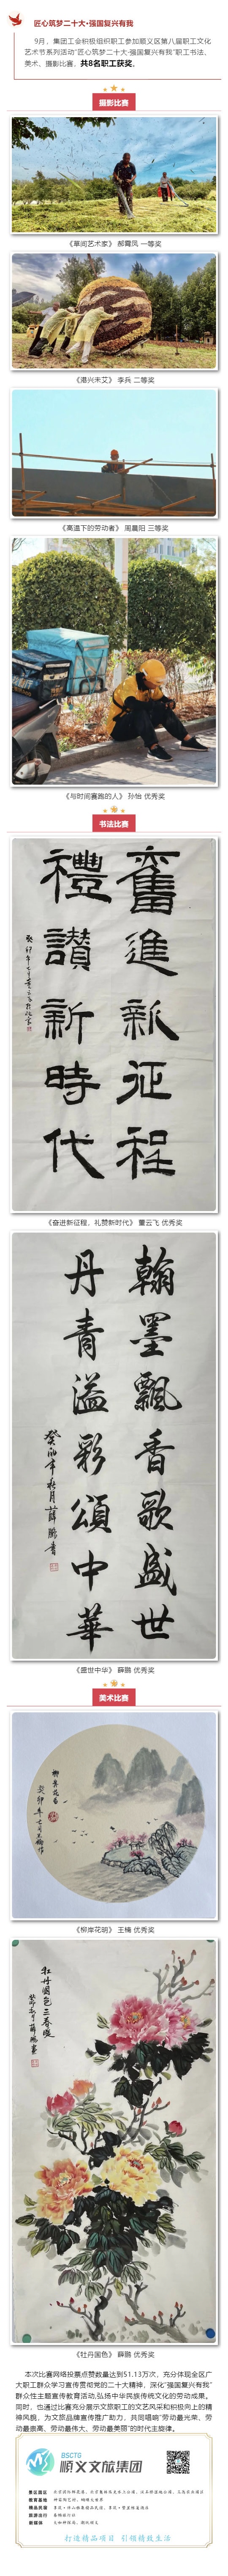 匠心筑梦二十大·强国复兴有我
9月，集团工会积极组织职工参加顺义区第八届职工文化
艺术节系列活动“匠心筑梦二十大·强国复兴有我”职工书法、
美术、摄影比赛，共8名职工获奖。
摄影比赛
《草间艺术家》 郝霄凤 一等奖
《港兴未艾》 李兵 二等奖
《高温下的劳动者》 周晨阳 三等奖
《与时间赛跑的人》 孙怡 优秀奖
书法比赛
奮進新征程
禮讃新時代
《奋进新征程，礼赞新时代》 董云飞 优秀奖
翰墨飄香歌盛世
丹青溢彩頌中華
癸卯年秋月薛鵬書
《盛世中华》 薛鹏 优秀奖
美术比赛
柳岸花明
《柳岸花明》 王楠 优秀奖
牡丹國色三春暖
《牡丹国色》 薛鹏 优秀奖
本次比赛网络投票点赞数量达到51.13万次，充分体现全区广
大职工群众学习宣传贯彻党的二十大精神，深化“强国复兴有我”
群众性主题宣传教育活动,弘扬中华民族传统文化的劳动成果。
同时，也通过比赛充分展示文旅职工的文艺风采和积极向上的精
神风貌，为文旅品牌宣传推广助力，共同唱响“劳动最光荣、劳
动最崇高、劳动最伟大、劳动最美丽”的时代主旋律。
BSCTG
顺义文旅集团
打造精品项目 引领精致生活